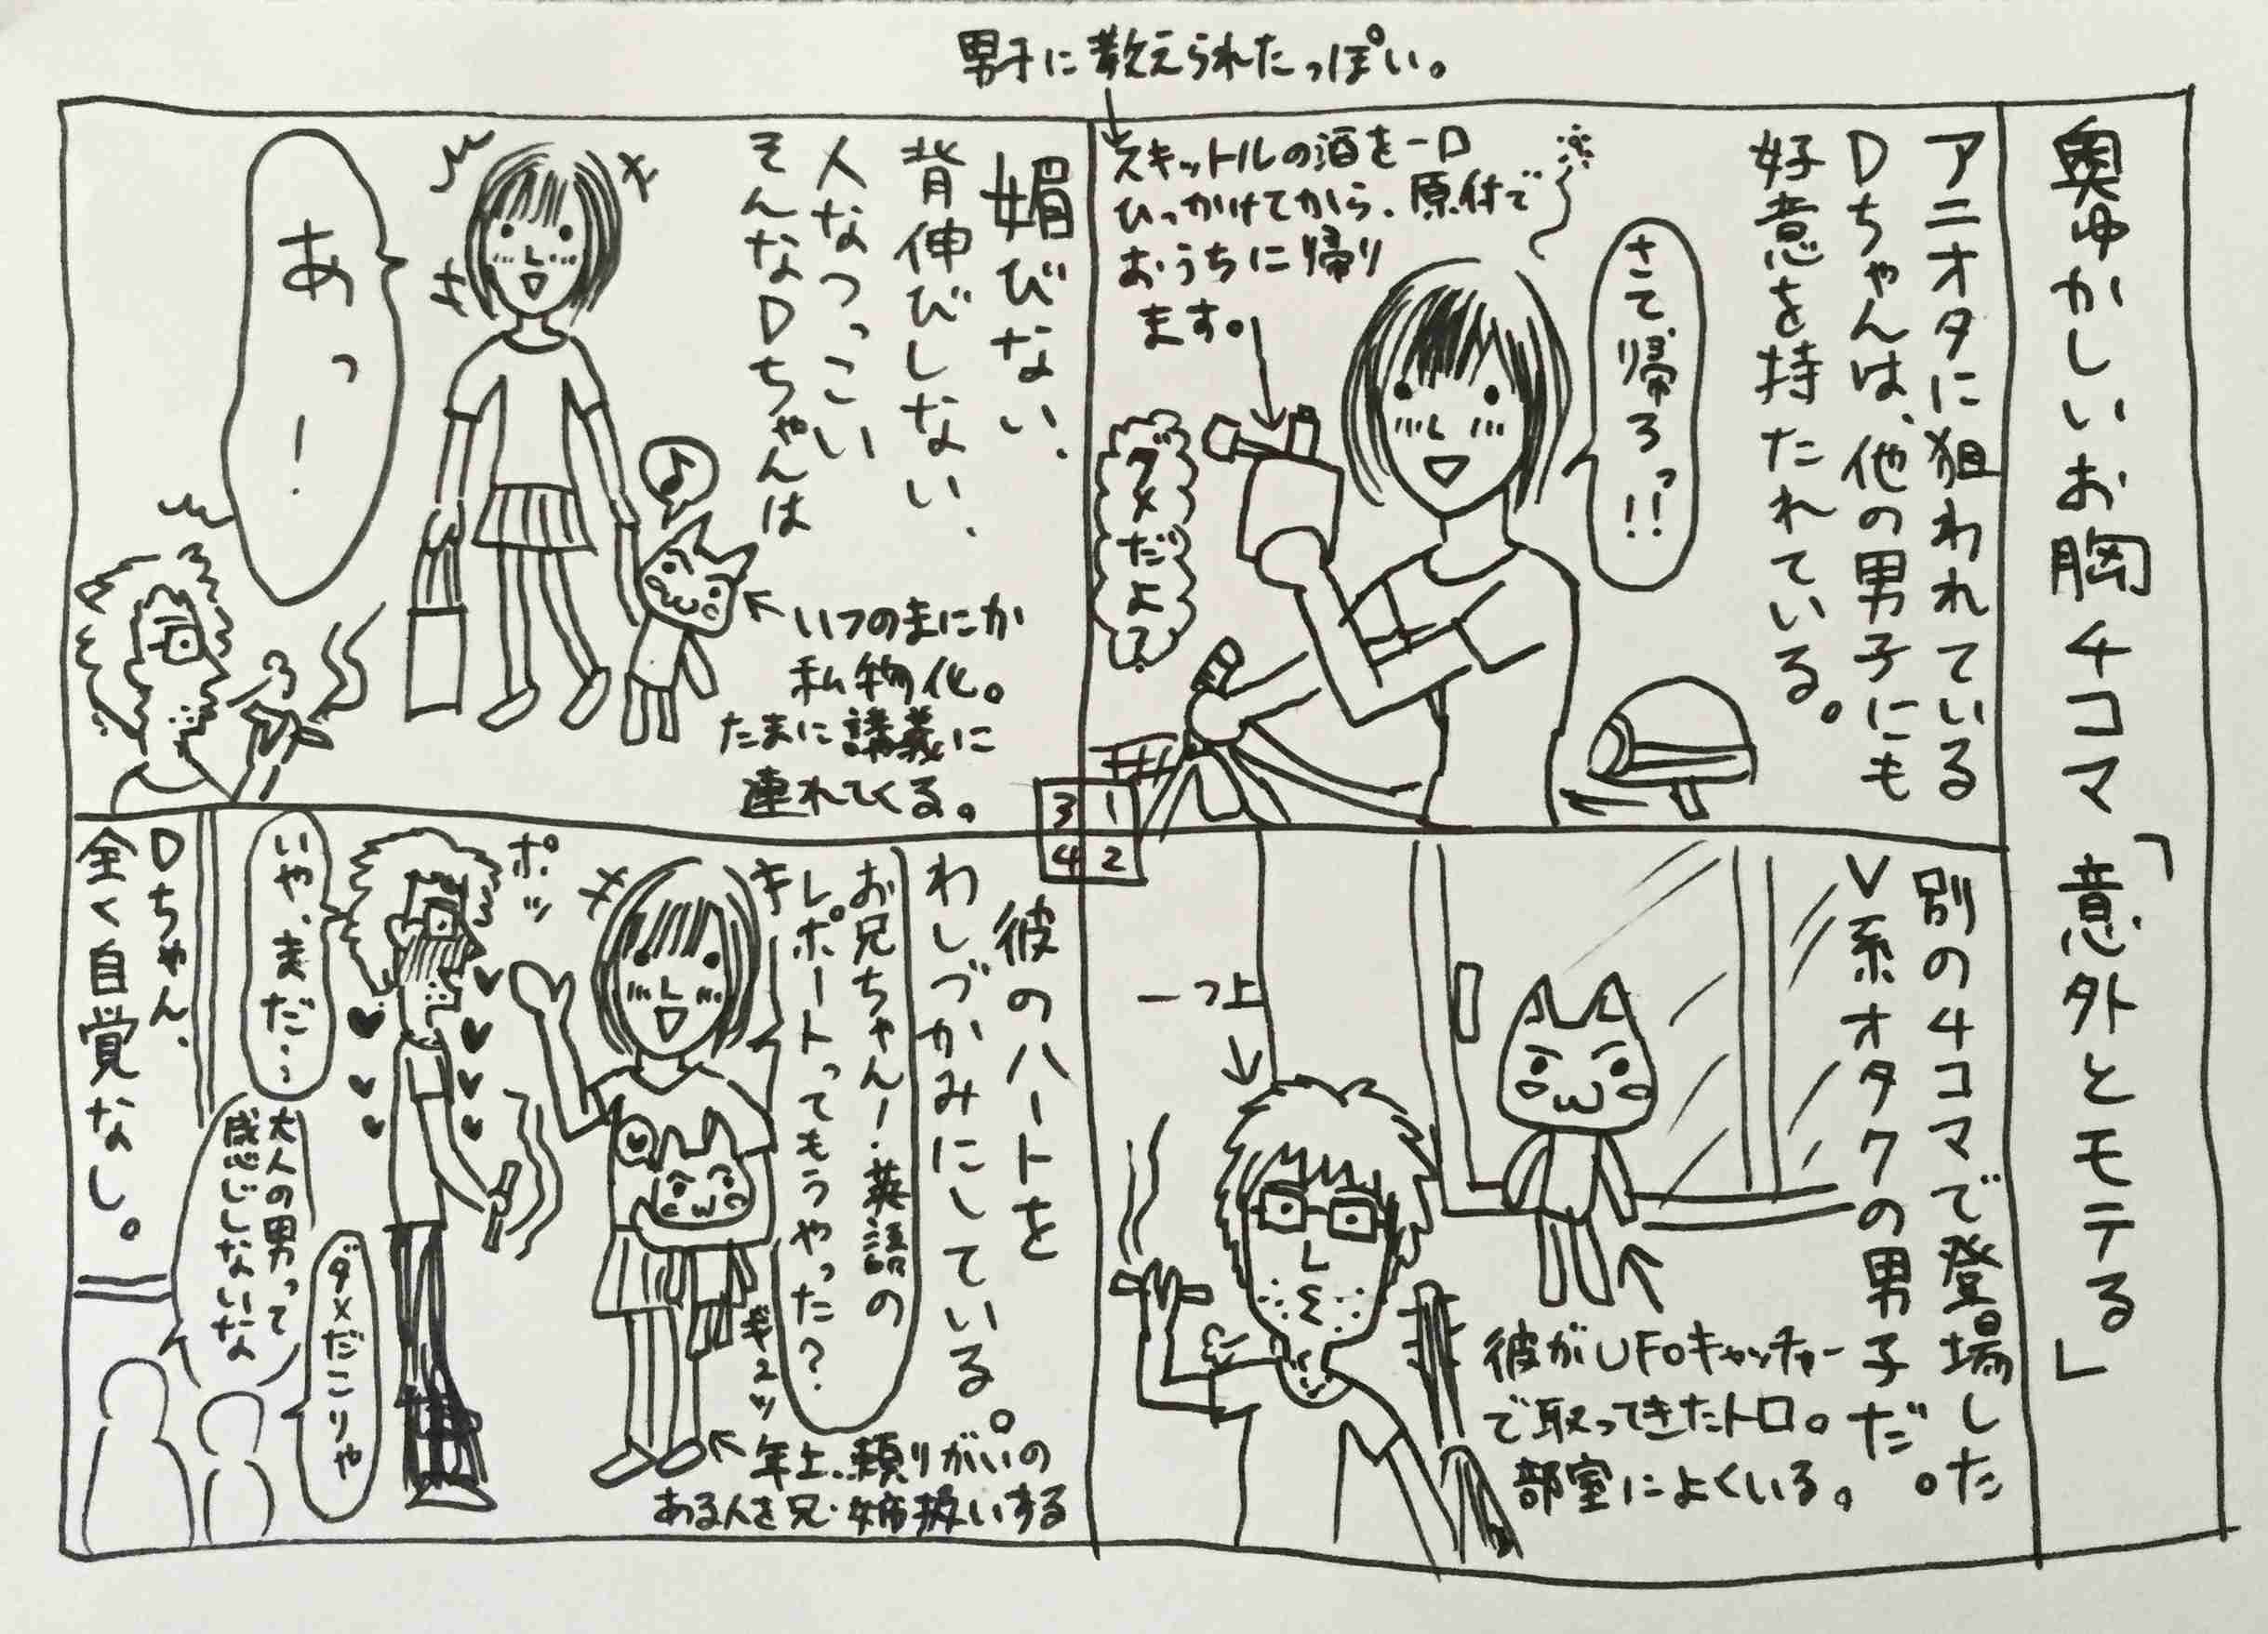 奥ゆかしいお胸4コマ「意外とモテる」
男子に教えられたっぽい。
アニオタに狙われている
Dちゃんは、他の男子にも
好意を持たれている。
さて、帰ろっ!!
スキットルの酒を一口
ひっかけてから、原付で
おうちに帰り
ます。
ダメだよ?
3 1
4 2
別の4コマで登場した
V系オタクの男子だ。
一つ上
彼がUFOキャッチャー
で取ってきたトロ。
部室によくいる。
媚びない、
背伸びしない、
人なつっこい
そんなDちゃんは
♪
あっ!
いつのまにか
私物化。
たまに講義に
連れてくる。
彼のハートを
わしづかみにしている。
お兄ちゃんー!英語の
レポートってもうやった?
ギュッ
年上、頼りがいの
ある人を兄・姉扱いする
ポッ
いや、まだ…
大人の男って
感じしないな
ダメだこりゃ
Dちゃん、
全く自覚なし。